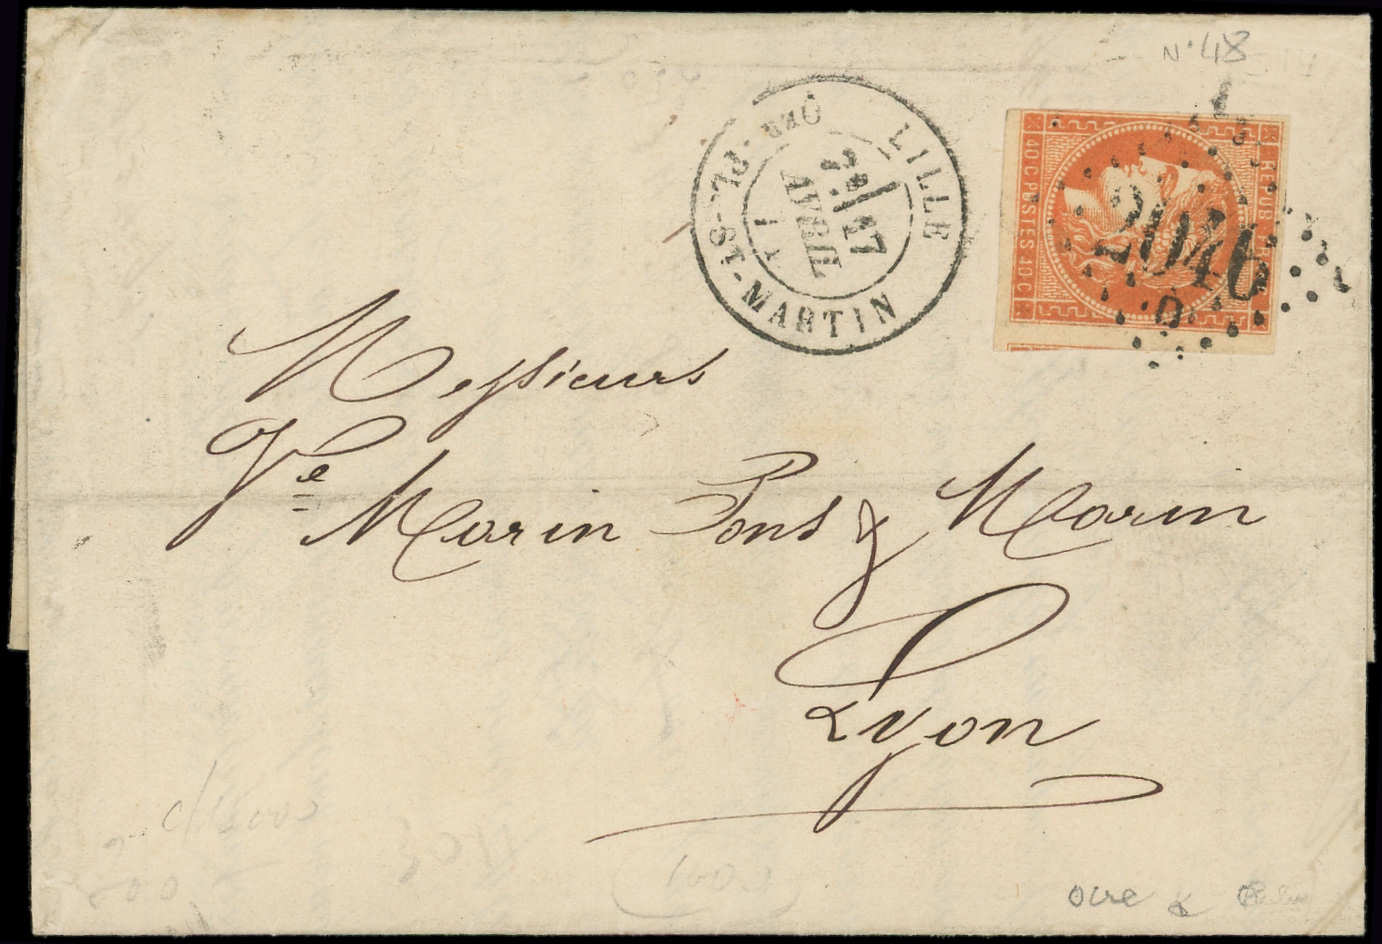 N° 48
LILLE
PL-ST-MARTIN
2E 
17
AVRIL
71
REPUB
40 C POSTES 40 C
2046
Messieurs
Ve Morin Pons & Morin
Lyon
1000
200